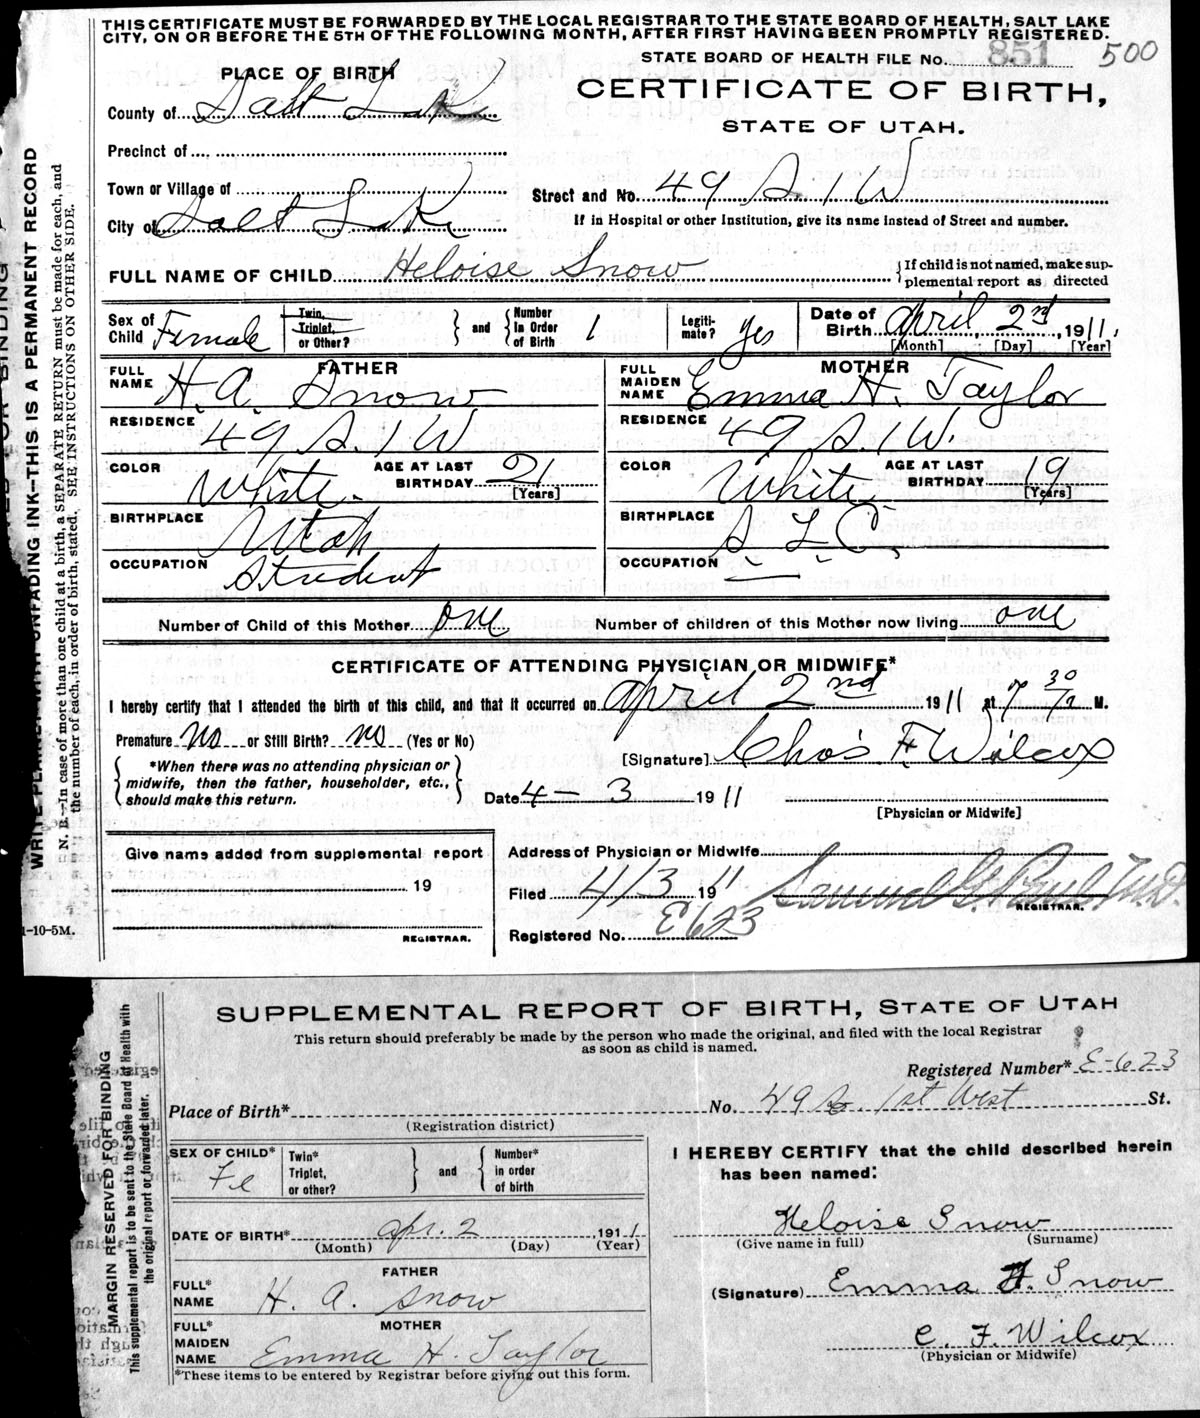 THIS CERTIFICATE MUST BE FORWARDED BY THE LOCAL REGISTRAR TO THE STATE BOARD OF HEALTH, SALT LAKE
CITY, ON OR BEFORE THE 5TH OF THE FOLLOWING MONTH, AFTER FIRST HAVING BEEN PROMPTLY REGISTERED.
STATE BOARD OF HEALTH FILE No. 851 500
PLACE OF BIRTH
CERTIFICATE OF BIRTH,
STATE OF UTAH.
County of Salt L K
Precinct of
Town or Village of
Street and No. 49 S. 1 W
City of Salt L K
If in Hospital or other Institution, give its name instead of Street and number.
FULL NAME OF CHILD Heloise Snow
If child is not named, make sup-
plemental report as directed
Sex of Child Female
Twin, Triplet, or Other?
and
Number in Order of Birth 1
Legiti-mate? Yes
Date of Birth April 2nd, 1911,
[Month] [Day] [Year]
FATHER
FULL NAME H. A. Snow
RESIDENCE 49 S. 1 W
COLOR White. AGE AT LAST BIRTHDAY 21
[Years]
BIRTHPLACE Utah
OCCUPATION Student
MOTHER
FULL MAIDEN NAME Emma H. Taylor
RESIDENCE 49 S. 1 W.
COLOR White AGE AT LAST BIRTHDAY 19
[Years]
BIRTHPLACE S. L. C.
OCCUPATION
Number of Child of this Mother one Number of children of this Mother now living one
CERTIFICATE OF ATTENDING PHYSICIAN OR MIDWIFE*
I hereby certify that I attended the birth of this child, and that it occurred on April 2nd 1911 at 7 30 M.
Premature No or Still Birth? no (Yes or No)
[Signature] Chas F Wilcox
*When there was no attending physician or
midwife, then the father, householder, etc.,
should make this return.
Date 4 - 3 1911
[Physician or Midwife]
Give name added from supplemental report
19
REGISTRAR.
Address of Physician or Midwife
Filed 4/3 1911 Samuel G. Paul M.D.
REGISTRAR.
Registered No. E623
WRITE PLAINLY WITH UNFADING INK—THIS IS A PERMANENT RECORD
N. B.—In case of more than one child at a birth, a SEPARATE RETURN must be made for each, and
the number of each, in order of birth, stated. SEE INSTRUCTIONS ON OTHER SIDE.
1-10-5M.
SUPPLEMENTAL REPORT OF BIRTH, STATE OF UTAH
This return should preferably be made by the person who made the original, and filed with the local Registrar
as soon as child is named.
Registered Number* E-623
Place of Birth* No. 49 S. 1st West St.
(Registration district)
SEX OF CHILD* Fe
Twin* Triplet, or other?
and
Number* in order of birth
DATE OF BIRTH* Apr. 2 1911
(Month) (Day) (Year)
FATHER
FULL* NAME H. A. Snow
MOTHER
FULL* MAIDEN NAME Emma H. Taylor
*These items to be entered by Registrar before giving out this form.
I HEREBY CERTIFY that the child described herein
has been named:
Heloise Snow
(Give name in full) (Surname)
(Signature) Emma H. Snow
C. F. Wilcox
(Physician or Midwife)
MARGIN RESERVED FOR BINDING
This supplemental report is to be sent to the State Board of Health with
the original report or forwarded later.